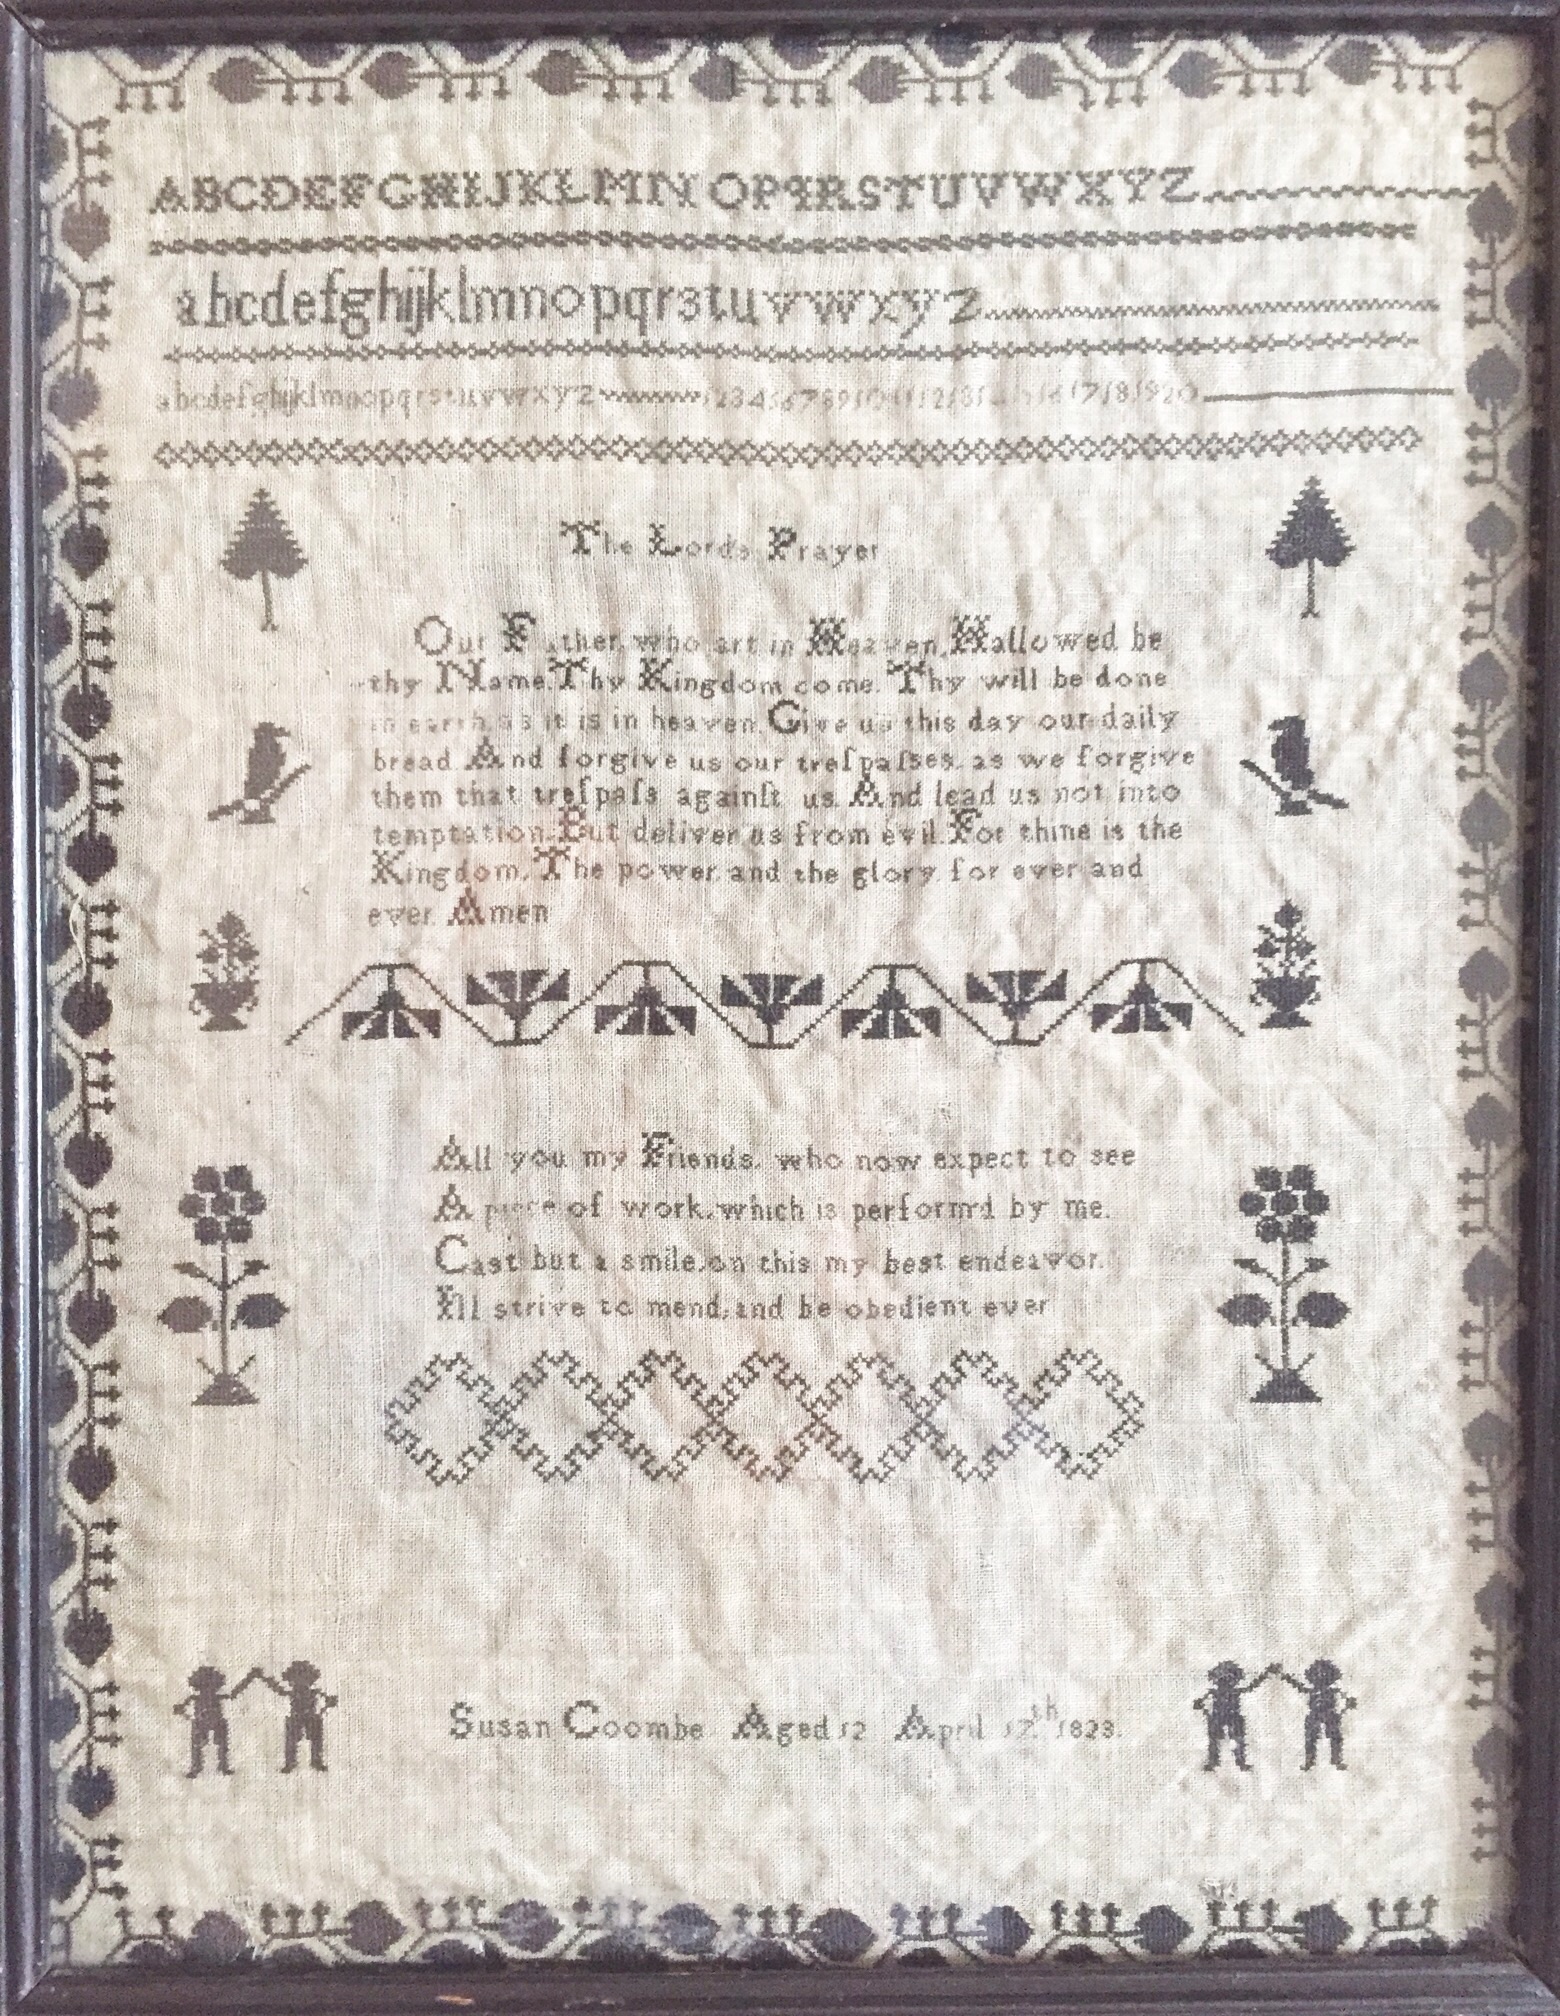 ABCDEFGHIJKLMNOPQRSTUVWXYZ
abcdefghijklmnopqrstuvwxyz
abcdefghijklmnopqrstuvwxyz 1234567891011121314151617181920
The Lords Prayer
Our Father, who art in Heaven, Hallowed be
thy Name. Thy Kingdom come. Thy will be done
in earth, as it is in heaven. Give us this day our daily
bread. And forgive us our treſpaſses, as we forgive
them that treſpaſs againſt us. And lead us not into
temptation. But deliver us from evil. For thine is the
Kingdom, The power, and the glory, for ever and
ever. Amen
All you my Friends, who now expect to see
A piece of work, which is perform'd by me.
Cast but a smile, on this my best endeavor.
I'll strive to mend, and be obedient ever
Susan Coombe Aged 12 April 12th 1828.